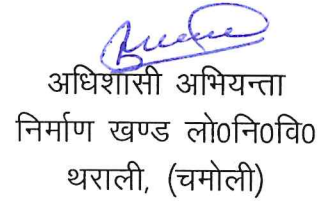 अधिशासी अभियन्ता
निर्माण खण्ड लो०नि०वि०
थराली, (चमोली)